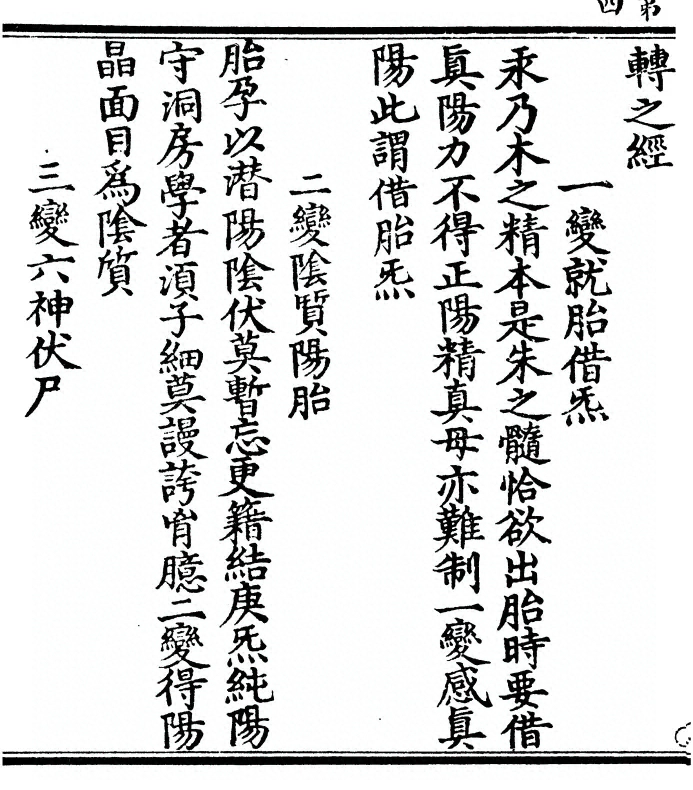 弟四
轉之經
一變就胎借炁
汞乃木之精本是朱之髓恰欲出胎時要借
眞陽力不得正陽精真母亦難制一變感眞
陽此謂借胎炁
二變陰質陽胎
胎孕以潜陽陰伏莫暫忘更籍結庚炁純陽
守洞房學者湏子細莫謾誇胷臆二變得陽
晶面目爲陰質
三變六神伏尸